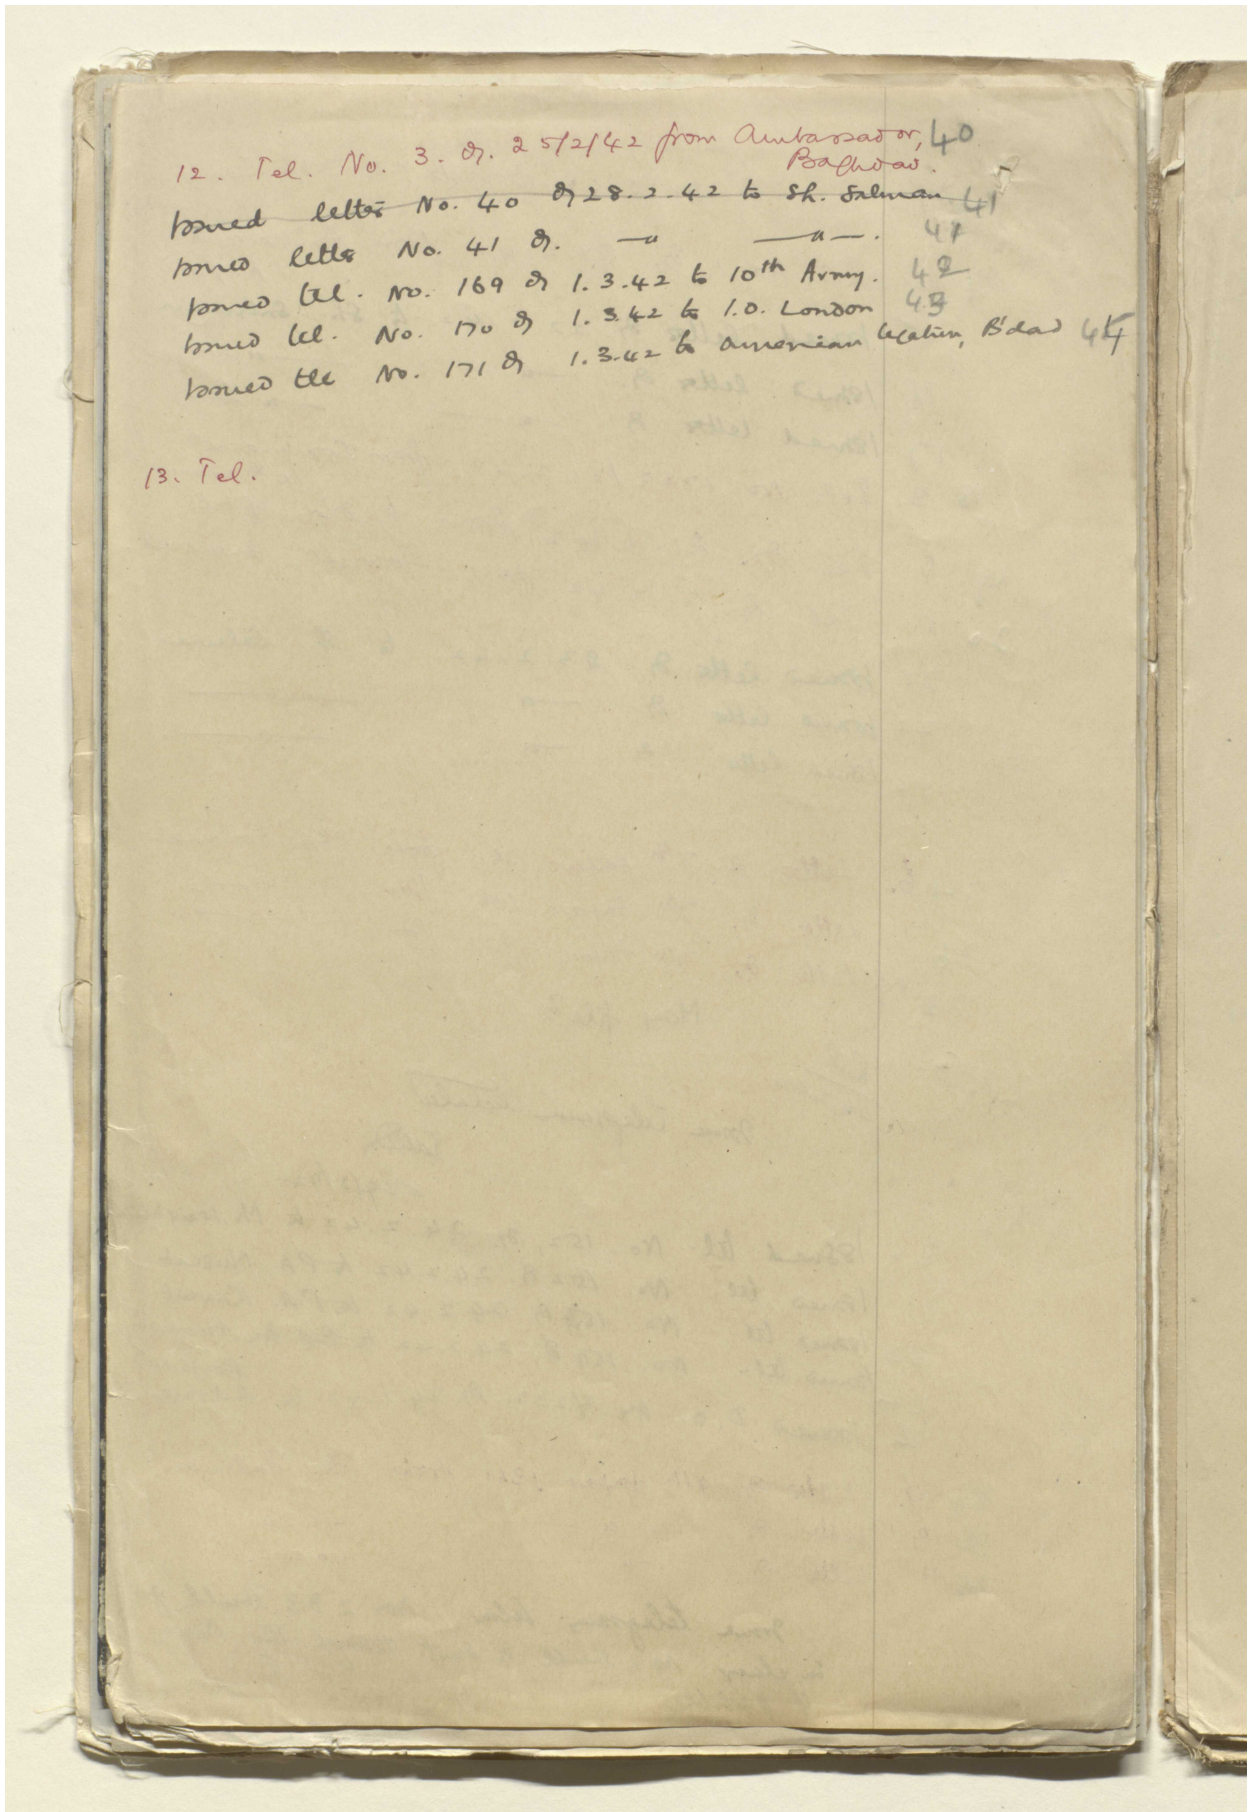 12. Tel. No. 3. d. 25/2/42 from Ambassador, 40
Baghdad.
Issued letter No. 40 d 28.2.42 to Sh. Salman 41
Issued letter No. 41 d. —"— —"—. 41
Issued tel. No. 169 d 1.3.42 to 10th Army. 42
Issued tel. No. 170 d 1.3.42 to I.O. London 43
Issued tel No. 171 d 1.3.42 to American Legation, B'dad 44
13. Tel.